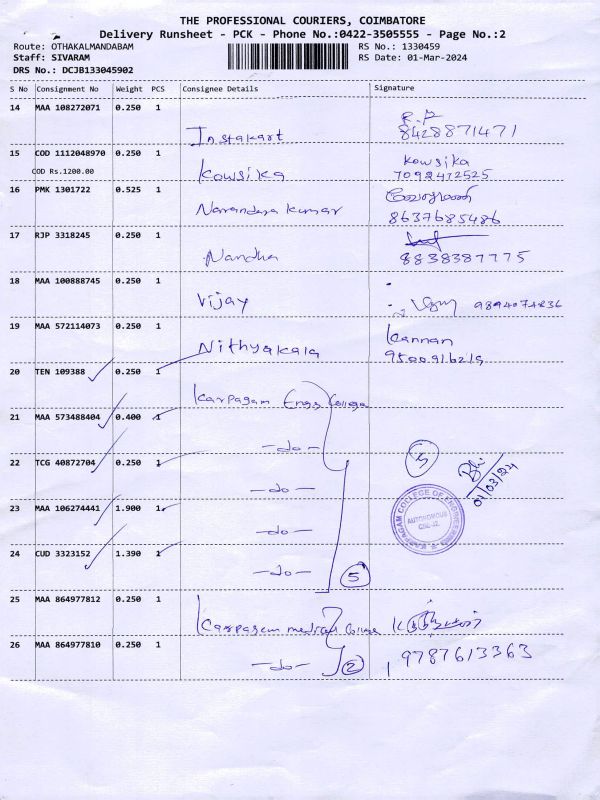 THE PROFESSIONAL COURIERS, COIMBATORE
Delivery Runsheet - PCK - Phone No.:0422-3505555 - Page No.:2
Route: OTHAKALMANDABAM RS No.: 1330459
Staff: SIVARAM RS Date: 01-Mar-2024
DRS No.: DCJB133045902
S No Consignment No Weight PCS Consignee Details Signature
14 MAA 108272071 0.250 1
Instakart R.P
8428871471
15 COD 1112048970 0.250 1 Kowsika
COD Rs.1200.00 Kowsika 7092472525
16 PMK 1301722 0.525 1
Narandera kumar 8637685486
17 RJP 3318245 0.250 1
Nandha 8838387775
18 MAA 100888745 0.250 1
Vijay 9894074236
19 MAA 572114073 0.250 1 Kannan
Nithyakala 9500916219
20 TEN 109388 0.250 1
Karpagam Engg College
21 MAA 573488404 0.400 1
-do- 5
22 TCG 40872704 0.250 1
-do- 01/03/24
23 MAA 106274441 1.900 1
-do- KARPAGAM COLLEGE OF ENGINEERING
AUTONOMOUS
24 CUD 3323152 1.390 1
-do- 5
25 MAA 864977812 0.250 1
Karpagam medical College
26 MAA 864977810 0.250 1
-do- 2 9787613363